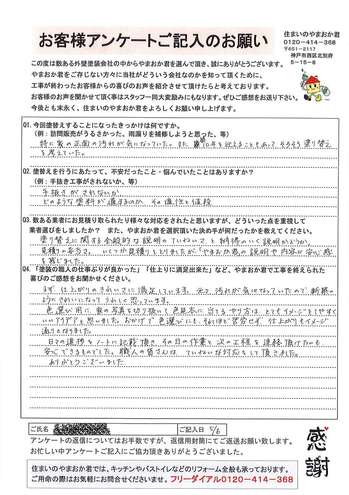 お客様アンケートご記入のお願い
住まいのやまおか君
0120-414-368
〒651-2117
神戸市西区北別府
5-15-8
この度は数ある外壁塗装会社の中からやまおか君を選んで頂き、誠にありがとうございます。
やまおか君をご存じない方々に当社がどういう会社なのかを知って頂くために、
工事が終わったお客様からの喜びのお声を紹介させて頂けたらと考えております。
お客様のお声を聞かせて頂く事はスタッフ一同大変励みにもなります。ぜひご感想をお送り下さい。
今後とも末永く、住まいのやまおか君をよろしくお願い申し上げます。
Q1. 今回塗替えすることになったきっかけは何ですか。
(例：訪問販売がうるさかった。雨漏りを補修しようと思った、等)
特に家の正面の汚れが気になっていた。また
を考えていた。
Q2. 塗替えを行うにあたって、不安だったこと・悩んでいたことはありますか？
(例：手抜き工事がされないか、等)
手抜きがされないか。
どのような塗料が適するのか。その適性と価格
Q3. 数ある業者にお見積り取られたり様々な対応をされたと思いますが、どういった点を重視して
業者選びをしましたか？ また、やまおか君を選択頂いた決め手が何だったかを教えてください。
塗り替えに関する全般的な説明のていねいさと納得のいく説明かどうか。
見積りの本当さ。いくつか見積りをとりましたが「やまおか君」の説明や内容が安心感
を感じました。
Q4.「塗装の職人の仕事ぶりが良かった」「仕上りに満足出来た」など、やまおか君で工事を終えられた
喜びのご感想をお聞かせください。
まず、仕上がりのきれいさに満足しています。元々汚れが気になっていたので新築の
ようにきれいになりうれしく思っています。
色選び用に家の写真を切り抜いて色見本に当てるやり方はとてもイメージしやすく
いいアイデアと思いました。おかげで色選びにもそれほど苦労せず、仕上がりもイメージ
通りとなりました。
日々の進捗をノートに記載頂き、その日の作業と次の工程を連絡頂けたのも
安心できるものでした。職人の皆さんは、ていねいな対応をして頂きました。
ありがとうございました
ご氏名
ご記入日
アンケートの返信についてはお手数ですが、返信用封筒にてご返送お願い致します。
お忙しい中アンケートにご協力頂きありがとうございました。
感謝
住まいのやまおか君では、キッチンやバストイレなどのリフォーム全般も承っております。
ご用命の際はお気軽にお問合せくださいませ。フリーダイアル0120-414-368